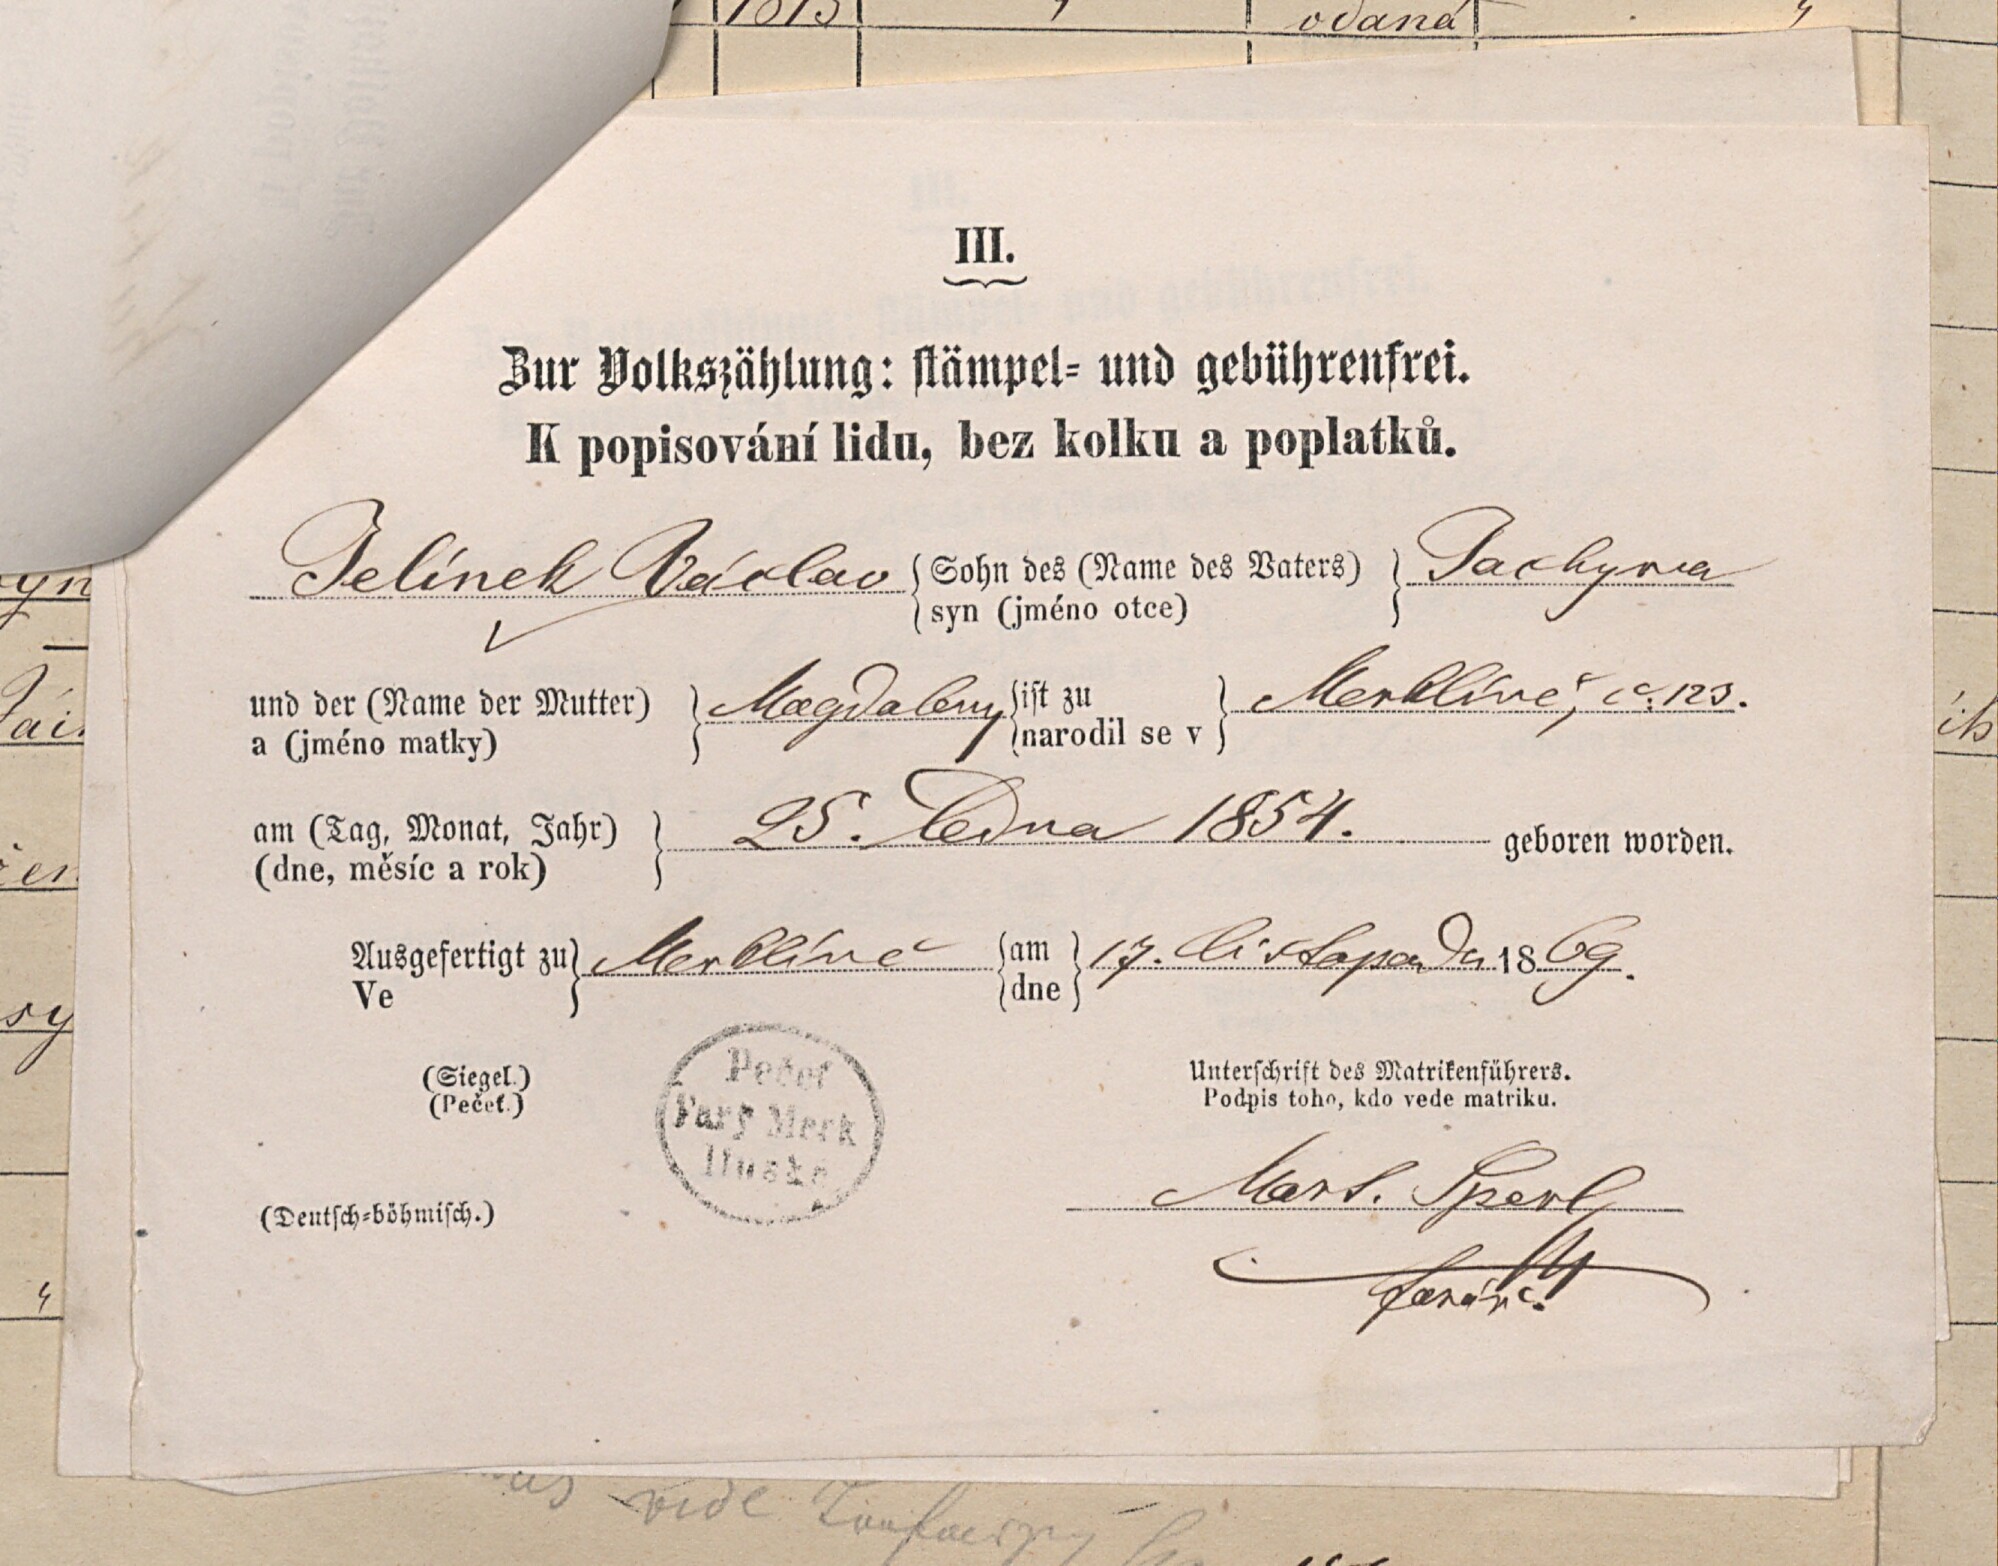 1813
odaná
III.
Zur Volkszählung: stämpel- und gebührenfrei.
K popisování lidu, bez kolku a poplatků.
Jelínek Václav { Sohn des (Name des Vaters) } Jachyma
syn (jméno otce)
und der (Name der Mutter) } Magdaleny { ist zu } Merklíně, č. 123.
a (jméno matky) narodil se v
am (Tag, Monat, Jahr) } 25. ledna 1854. geboren worden.
(dne, měsíc a rok)
Ausgefertigt zu } Merklíně { am } 17. listopadu 1869.
Ve dne
(Siegel.)
(Pečeť.)
Pečeť
Fary Merk
línské
Unterschrift des Matrikenführers.
Podpis toho, kdo vede matriku.
(Deutsch-böhmisch.)
Mart. Sperl
farář.
vide